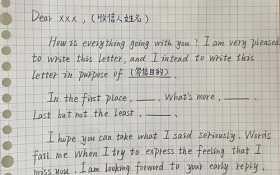 Dear xxx, (收信人姓名)
How is everything going with you? I am very pleased
to write this letter, and I intend to write this
letter in purpose of (写信目的).
In the first place, ____. What's more, ____.
Last but not the least, ____.
I hope you can take what I said seriously. Words
fail me when I try to express the feeling that I
miss you. I am looking forward to your early reply.